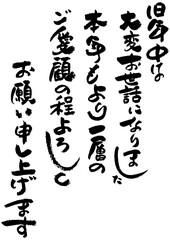 旧年中は
大変お世話になりました
本年もより一層の
ご愛顧の程よろしく
お願い申し上げます